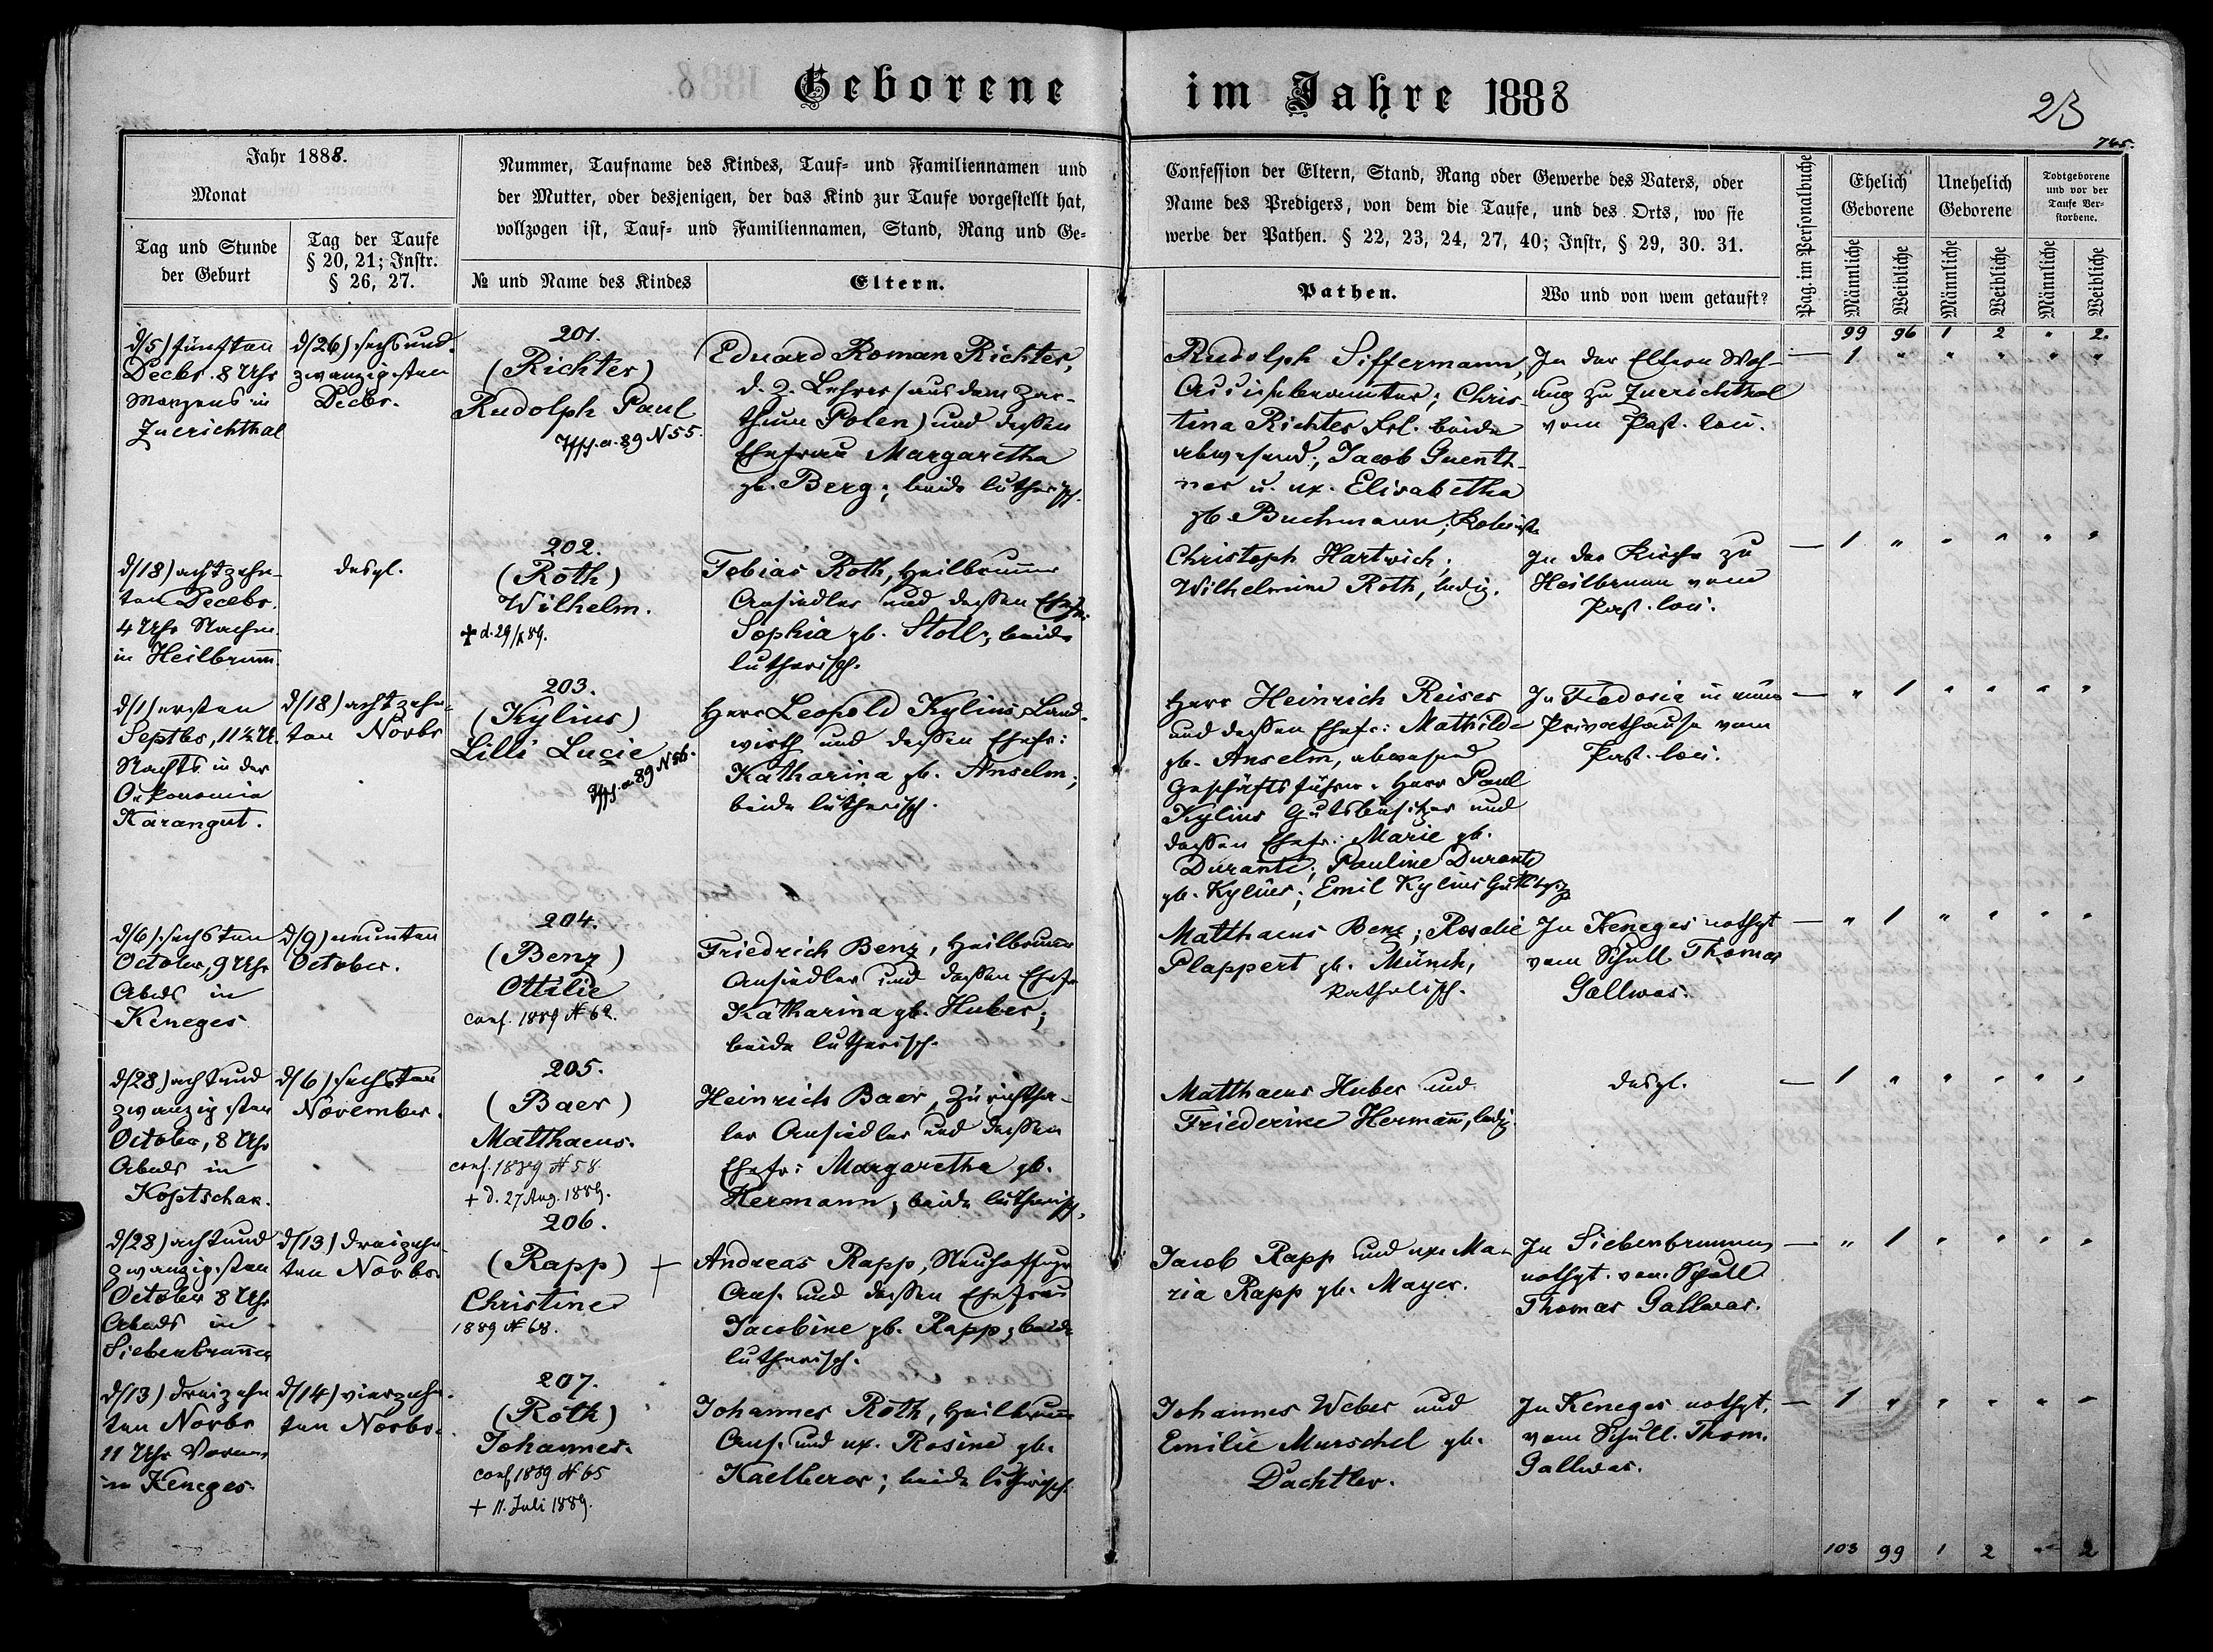 Geborene im Jahre 1888
23
745.
Jahr 1888.
Monat
Tag und Stunde
der Geburt
Tag der Taufe
§ 20, 21; Instr.
§ 26, 27.
Nummer, Taufname des Kindes, Tauf= und Familiennamen und
der Mutter, oder desjenigen, der das Kind zur Taufe vorgestellt hat,
vollzogen ist, Tauf= und Familiennamen, Stand, Rang und Ge=
№ und Name des Kindes
Eltern.
Confession der Eltern, Stand, Rang oder Gewerbe des Vaters, oder
Name des Predigers, von dem die Taufe, und des Orts, wo sie
werbe der Pathen. § 22, 23, 24, 27, 40; Instr, § 29, 30. 31.
Pathen.
Wo und von wem getauft?
Pag. im Personalbuche
Ehelich
Geborene
Unehelich
Geborene
Todtgeborene
und vor der
Taufe Ver=
storbene.
Männliche
Weibliche
Männliche
Weibliche
Männliche
Weibliche
99 96 1 2 " 2.
d/5) fünften
Decbr. 8 Uhr
Morgens in
Zuerichthal
d/26) sechsund-
zwanzigsten
Decbr.
201.
(Richter)
Rudolph Paul
a. 89 N 55.
Eduard Roman Richter,
d. Z. Lehrer (aus dem Zar-
thum Polen) und dessen
Ehefrau Margaretha
gb. Berg; beide lutherisch.
Rudolph Siffermann,
Accisebeamter; Chris-
tina Richter Frl. beide
abwesend; Jacob Guenth-
ner u. ux. Elisabetha
gb. Buchmann; Kolonist
In der Eltern Woh-
ung zu Zuerichthal
vom Past. loci.
— 1 " " " " "
d/18) achtzehn-
ten Decebr.
4 Uhr Nachm.
in Heilbrunn.
desgl.
202.
(Roth)
Wilhelm.
✝ d. 29/X 89.
Tobias Roth, Heilbrunner
Ansiedler und dessen Ehefr.
Sophia gb. Stoll; beide
lutherisch.
Christoph Hartwich;
Wilhelmine Roth, ledig.
In der Kirche zu
Heilbrunn vom
Past. loci.
— 1 " " " " "
d/1) ersten
Septbr, 11½ U.
Nachts in der
Oekonomie
Karangut.
d/18) achtzehn-
ten Novbr
203.
(Kylius)
Lilli Lucie
a. 89 N 56.
Herr Leopold Kylius, Land-
wirth und dessen Ehefr:
Katharina gb. Anselm;
beide lutherisch.
Herr Heinrich Reiser
und dessen Ehefr: Mathilde
gb. Anselm, abwesend
Geschäftsführer. Herr Paul
Kylius Gutsbesitzer und
dessen Ehefr: Marie gb.
Durante; Pauline Durante
gb. Kylius; Emil Kylius Gutsbesz
In Feodosia in einem
Privathause vom
Past. loci.
— " 1 " " " "
d/6) sechsten
October, 9 Uhr
Abeds in
Keneges
d/9) neunten
October.
204.
(Benz)
Ottilie
conf. 1889 N 62.
Friedrich Benz, Heilbrunner
Ansiedler und dessen Ehefr
Katharina gb. Huber;
beide lutherisch.
Matthaeus Benz; Rosalie
Plappert gb. Münch,
katholisch.
In Keneges nothgt
vom Schull. Thomas
Gallwas.
— " 1 " " " "
d/28) achtund
zwanzigsten
October, 8 Uhr
Abeds in
Koptschak.
d/6) sechsten
November.
205.
(Baer)
Matthaeus.
conf. 1889 N 58
+ d. 27 Aug. 1889.
Heinrich Baer, Zürichtha-
ler Ansiedler und dessen
Ehefr: Margaretha gb.
Hermann; beide lutherisch.
Matthaeus Huber und
Friederike Hermann, ledig.
desgl.
— 1 " " " " "
d/28) achtund
zwanzigsten
October 8 Uhr
Abeds in
Siebenbrunnen
d/13) dreizehn-
ten Novbr
206.
(Rapp) +
Christine
1889 N 68.
Andreas Rapp, Neuhoffngr
Ans. und dessen Ehefrau
Jacobine gb. Rapp; beide
lutherisch.
Jacob Rapp und uxe Ma-
ria Rapp gb. Mayer.
In Siebenbrunnen
nothgt. vom Schull
Thomas Gallwas.
— " 1 " " " "
d/13) dreizehn
ten Novbr
11 Uhr Vorm.
in Keneges.
d/14) vierzehn-
ten Novbr.
207.
(Roth)
Johannes.
conf 1889 N 65
+ 11. Juli 1889.
Johannes Roth, Heilbrunn
Ans. und ux. Rosine gb.
Kaelberer; beide lutherisch.
Johannes Weber und
Emilie Murschel gb.
Dachtler.
In Keneges nothgt.
vom Schull. Thom.
Gallwas.
— 1 " " " " "
103 99 1 2 " 2